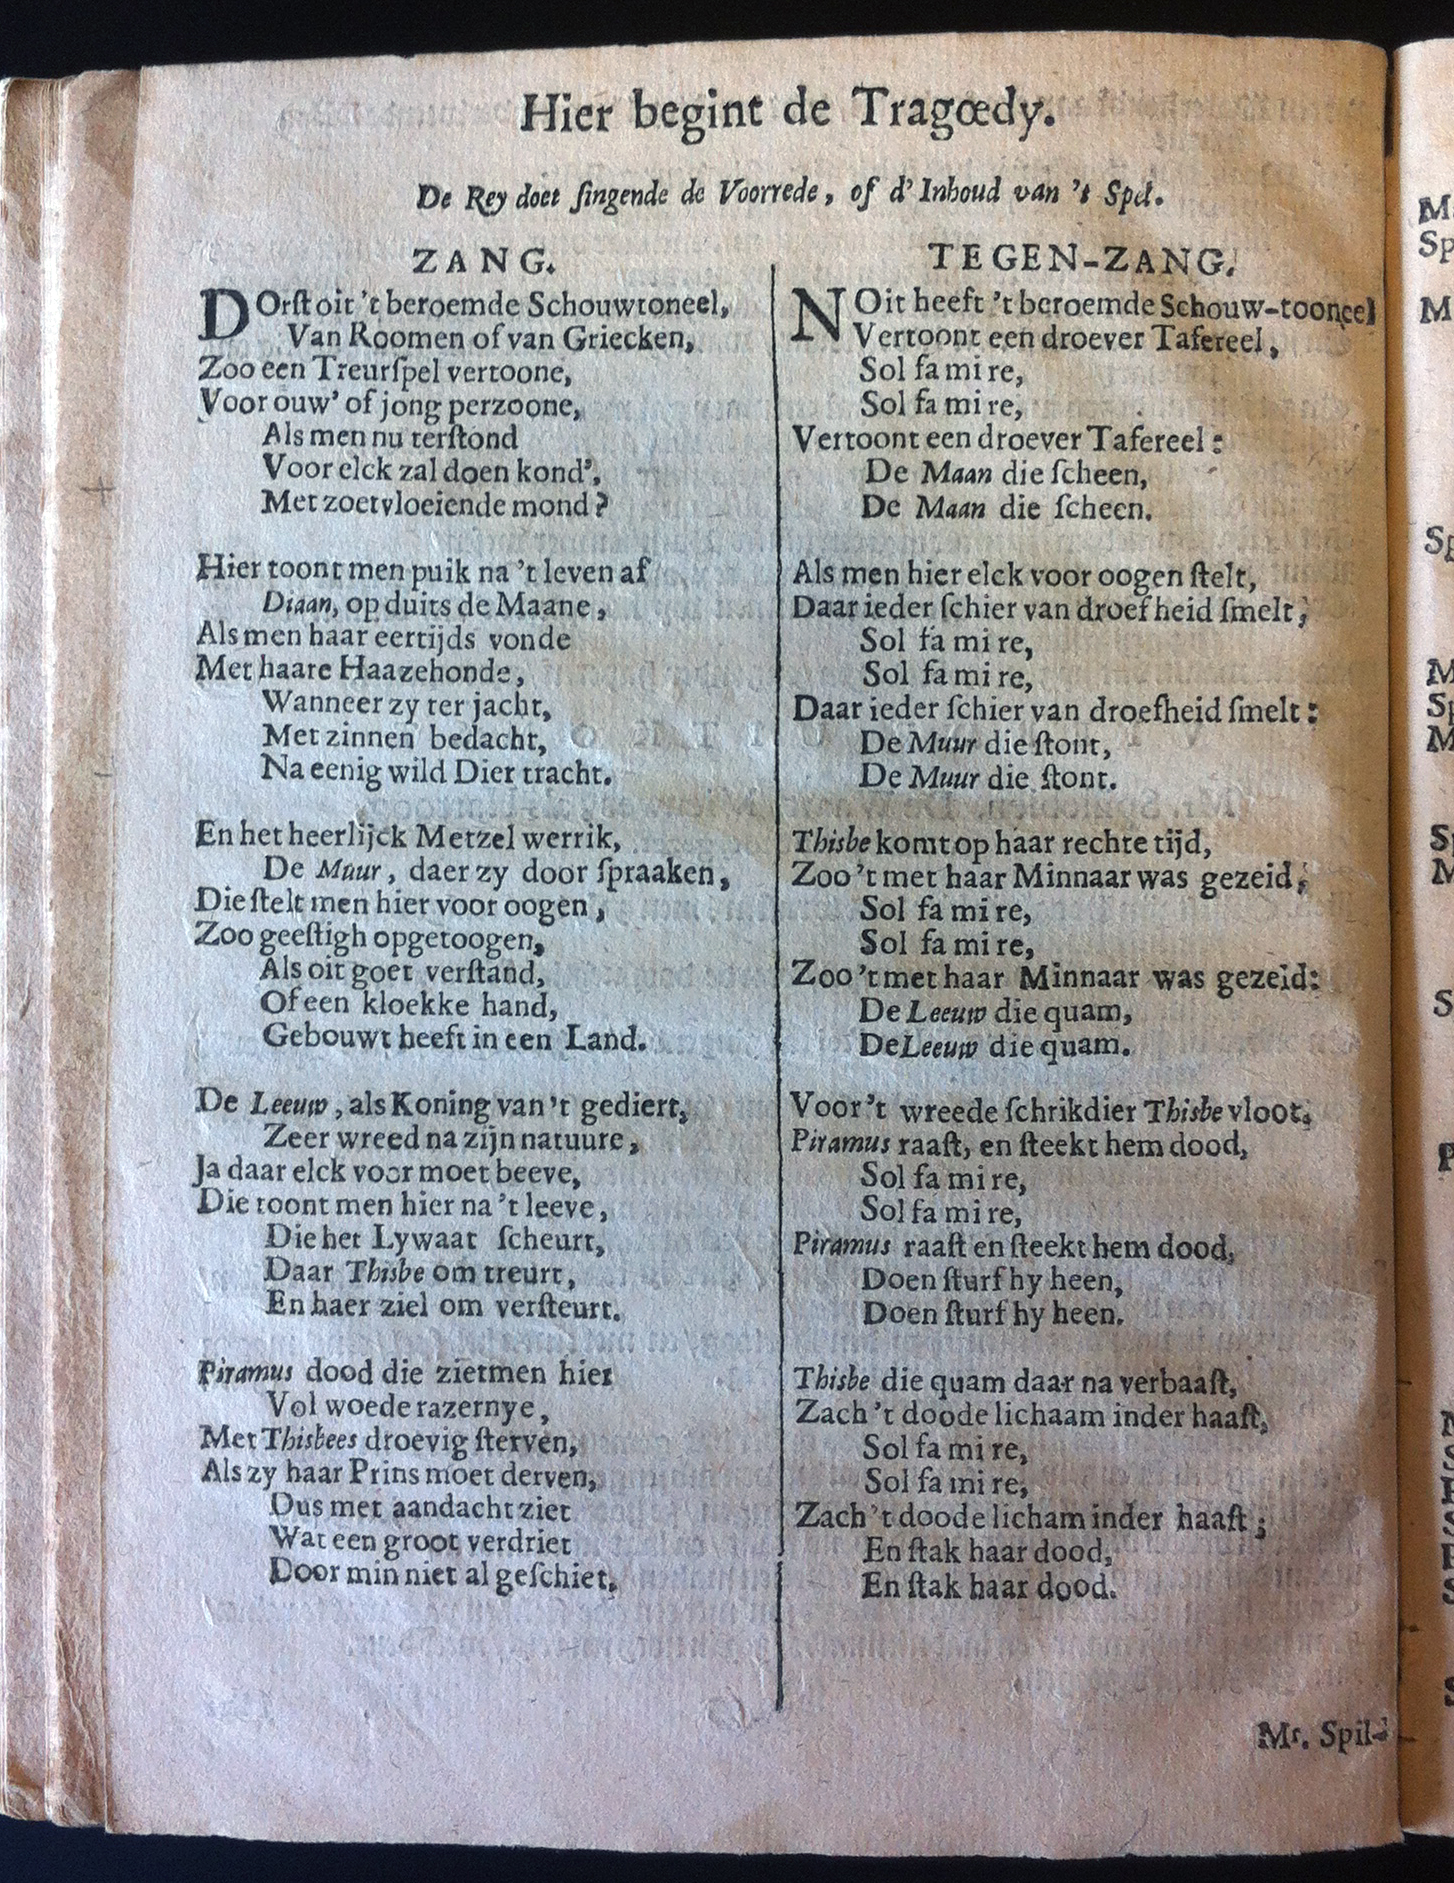 Hier begint de Tragœdy.
De Rey doet ſingende de Voorrede, of d' Inhoud van 't Spel.
ZANG.
DOrſt oit 't beroemde Schouwtoneel,
Van Roomen of van Griecken,
Zoo een Treurſpel vertoone,
Voor ouw' of jong perzoone,
Als men nu terſtond
Voor elck zal doen kond',
Met zoetvloeiende mond?
Hier toont men puik na 't leven af
Diaan, op duits de Maane,
Als men haar eertijds vonde
Met haare Haazehonde,
Wanneer zy ter jacht,
Met zinnen bedacht,
Na eenig wild Dier tracht.
En het heerlijck Metzel werrik,
De Muur, daer zy door ſpraaken,
Die ſtelt men hier voor oogen,
Zoo geeſtigh opgetoogen,
Als oit goet verſtand,
Of een kloekke hand,
Gebouwt heeft in een Land.
De Leeuw, als Koning van 't gediert,
Zeer wreed na zijn natuure,
Ja daar elck voor moet beeve,
Die toont men hier na 't leeve,
Die het Lywaat ſcheurt,
Daar Thisbe om treurt,
En haer ziel om verſteurt.
Piramus dood die zietmen hier
Vol woede razernye,
Met Thisbees droevig ſterven,
Als zy haar Prins moet derven,
Dus met aandacht ziet
Wat een groot verdriet
Door min niet al geſchiet.
TEGEN-ZANG.
NOit heeft 't beroemde Schouw-tooneel
Vertoont een droever Tafereel,
Sol fa mi re,
Sol fa mi re,
Vertoont een droever Tafereel:
De Maan die ſcheen,
De Maan die ſcheen.
Als men hier elck voor oogen ſtelt,
Daar ieder ſchier van droefheid ſmelt,
Sol fa mi re,
Sol fa mi re,
Daar ieder ſchier van droefheid ſmelt:
De Muur die ſtont,
De Muur die ſtont.
Thisbe komt op haar rechte tijd,
Zoo 't met haar Minnaar was gezeid,
Sol fa mi re,
Sol fa mi re,
Zoo 't met haar Minnaar was gezeid:
De Leeuw die quam,
De Leeuw die quam.
Voor 't wreede ſchrikdier Thisbe vloot,
Piramus raaſt, en ſteekt hem dood,
Sol fa mi re,
Sol fa mi re,
Piramus raaſt en ſteekt hem dood,
Doen ſturf hy heen,
Doen ſturf hy heen.
Thisbe die quam daar na verbaaſt,
Zach 't doode lichaam inder haaſt,
Sol fa mi re,
Sol fa mi re,
Zach 't doode licham inder haaſt;
En ſtak haar dood,
En ſtak haar dood.
Mr. Spil-